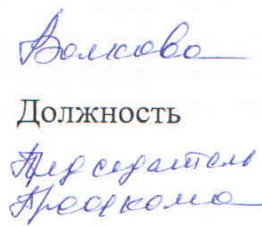 Волкова
Должность
Председатель
Профкома